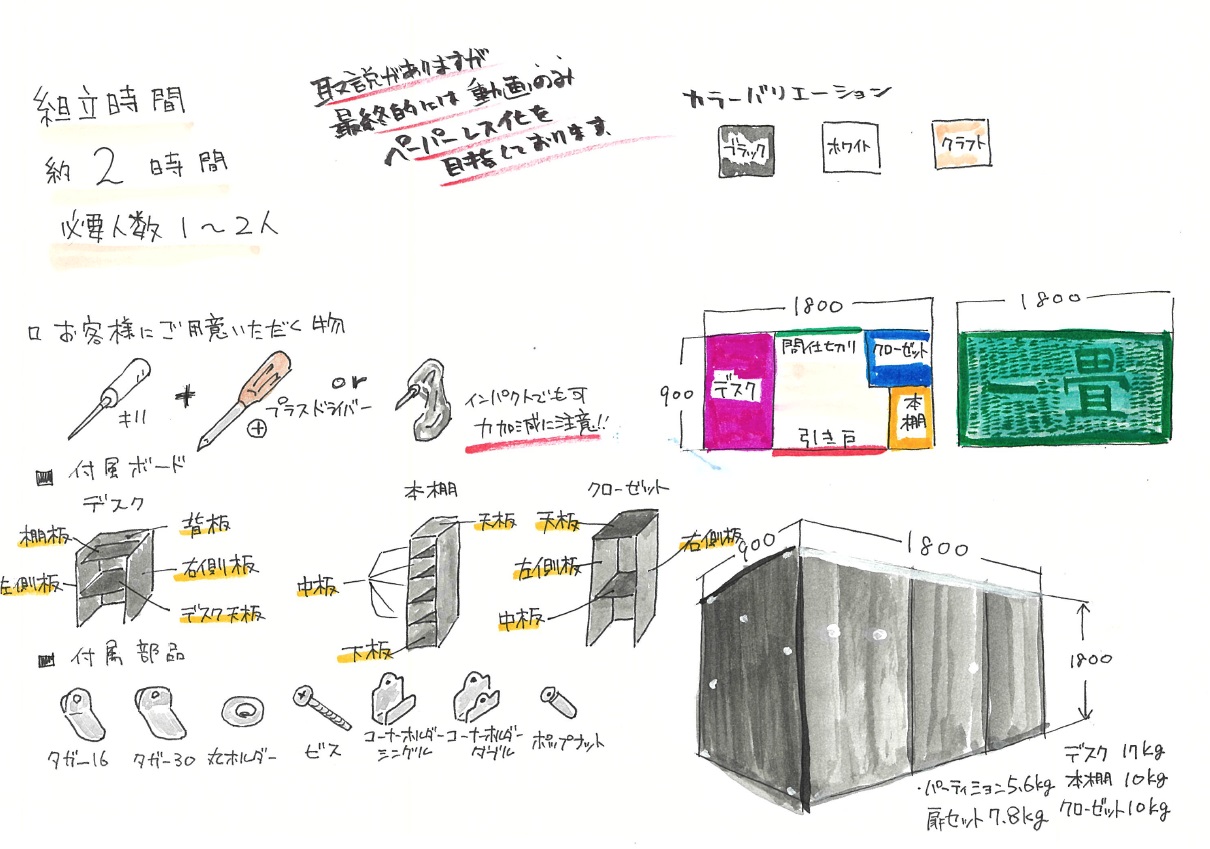 組立時間
約2時間
必要人数 1〜2人
取説がありますが
最終的には動画のみ
ペーパーレス化を
目指しております。
カラーバリエーション
ブラック
ホワイト
クラフト
□ お客様にご用意いただく物
キリ
+
プラスドライバー
or
インパクトでも可
力加減に注意!!
1800
900
デスク
間仕切り
クローゼット
本棚
引き戸
1800
一畳
■ 付属ボード
デスク
棚板
背板
左側板
右側板
デスク天板
本棚
天板
中板
下板
クローゼット
天板
左側板
右側板
中板
■ 付属部品
タガー16
タガー30
丸ホルダー
ビス
コーナーホルダー
シングル
コーナーホルダー
ダブル
ポップナット
900
1800
1800
デスク 17kg
・パーティション5.6kg
本棚 10kg
扉セット7.8kg
クローゼット10kg